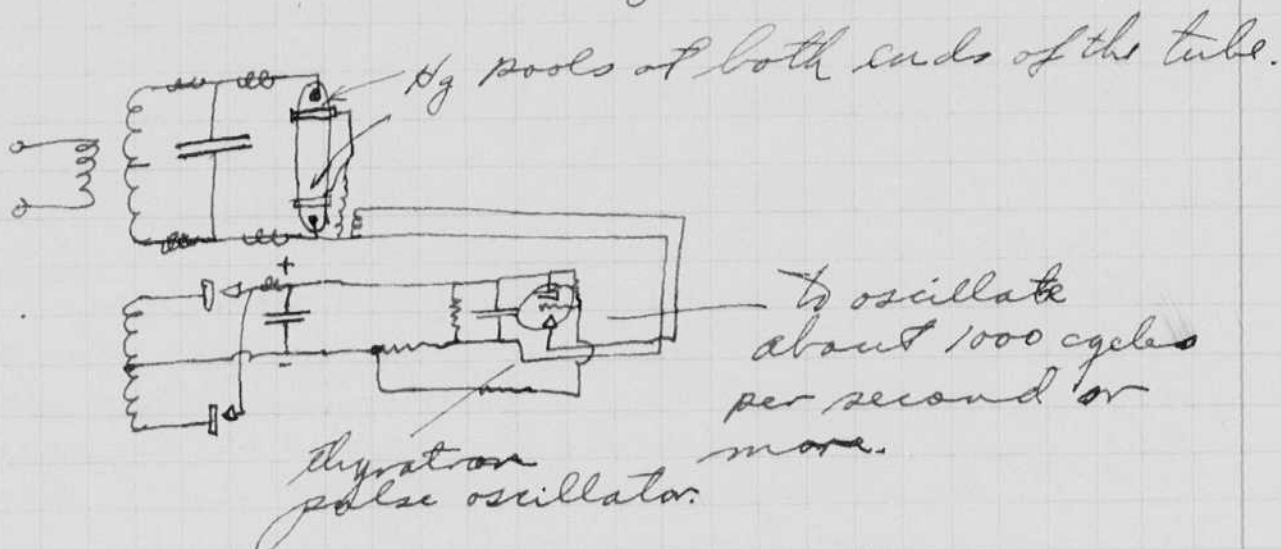 Hg pools at both ends of the tube.
+
-
to oscillate
about 1000 cycles
per second or
more.
thyratron
pulse oscillator.